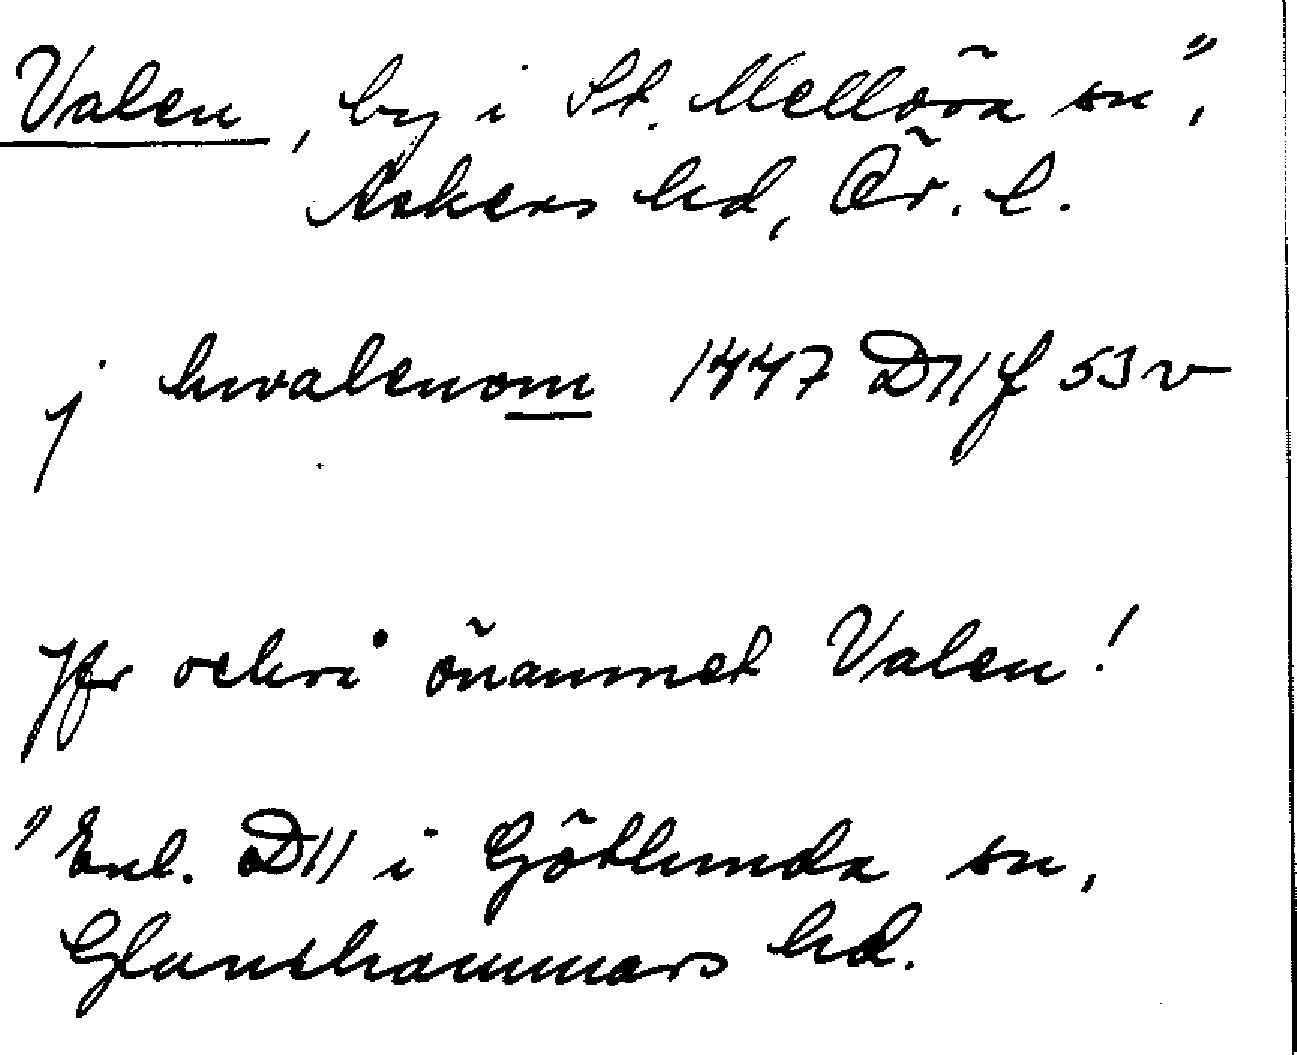 Valen, by i St. Mellösa sn",
Askers hd, Ör. l.
j hwalenom 1447 D11 f 53 v
Jfr också önamnet Valen!
" Enl. D11 i Götlunda sn,
Glanshammars hd.